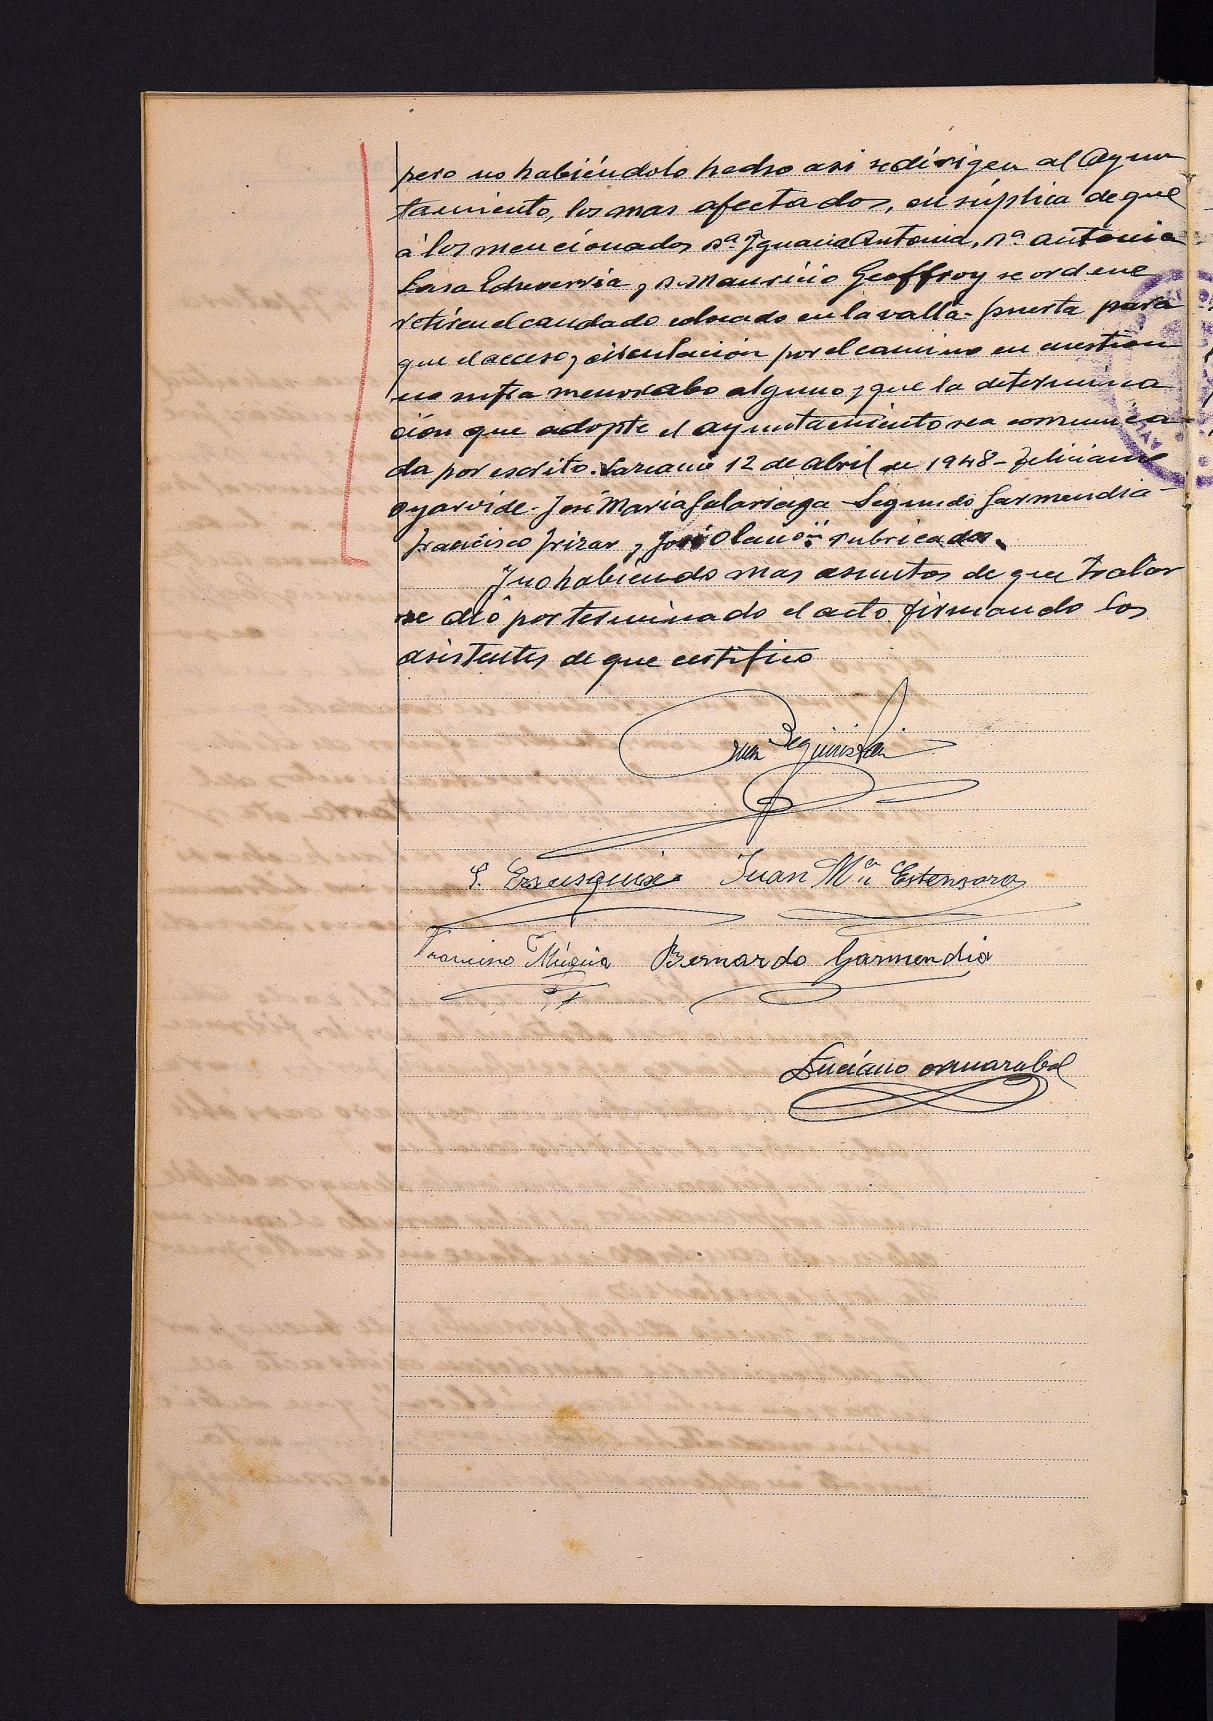 pero no habiéndolo hecho asi se dirigen al Ayun
tamiento, los mas afectados, en súplica de que
á los mencionados Dª. Ignacia Antonia, Dª Antonia
Lasa Echeverria y D. Mauricio Geoffroy se ordene
retiren el candado colocado en la valla-puerta para
que el acceso y circulación por el camino en cuestion
no sufra menoscabo alguno y que la determina
ción que adopte el ayuntamiento sea comunica
da por escrito. Lazcano 12 de abril de 1948 - Feliciano
Oyarvide. José Maria Galarraga - Segundo Garmendia -
Francisco Irizar y José Olano:: rubricados.
Y no habiendo mas asuntos de que tratar
se dió por terminado el acto firmando los
asistentes de que certifico
Juan Beguiristain
S. Erausquin Juan Mª Estensoro
Francisco Múgica Bernardo Garmendia
Luciano